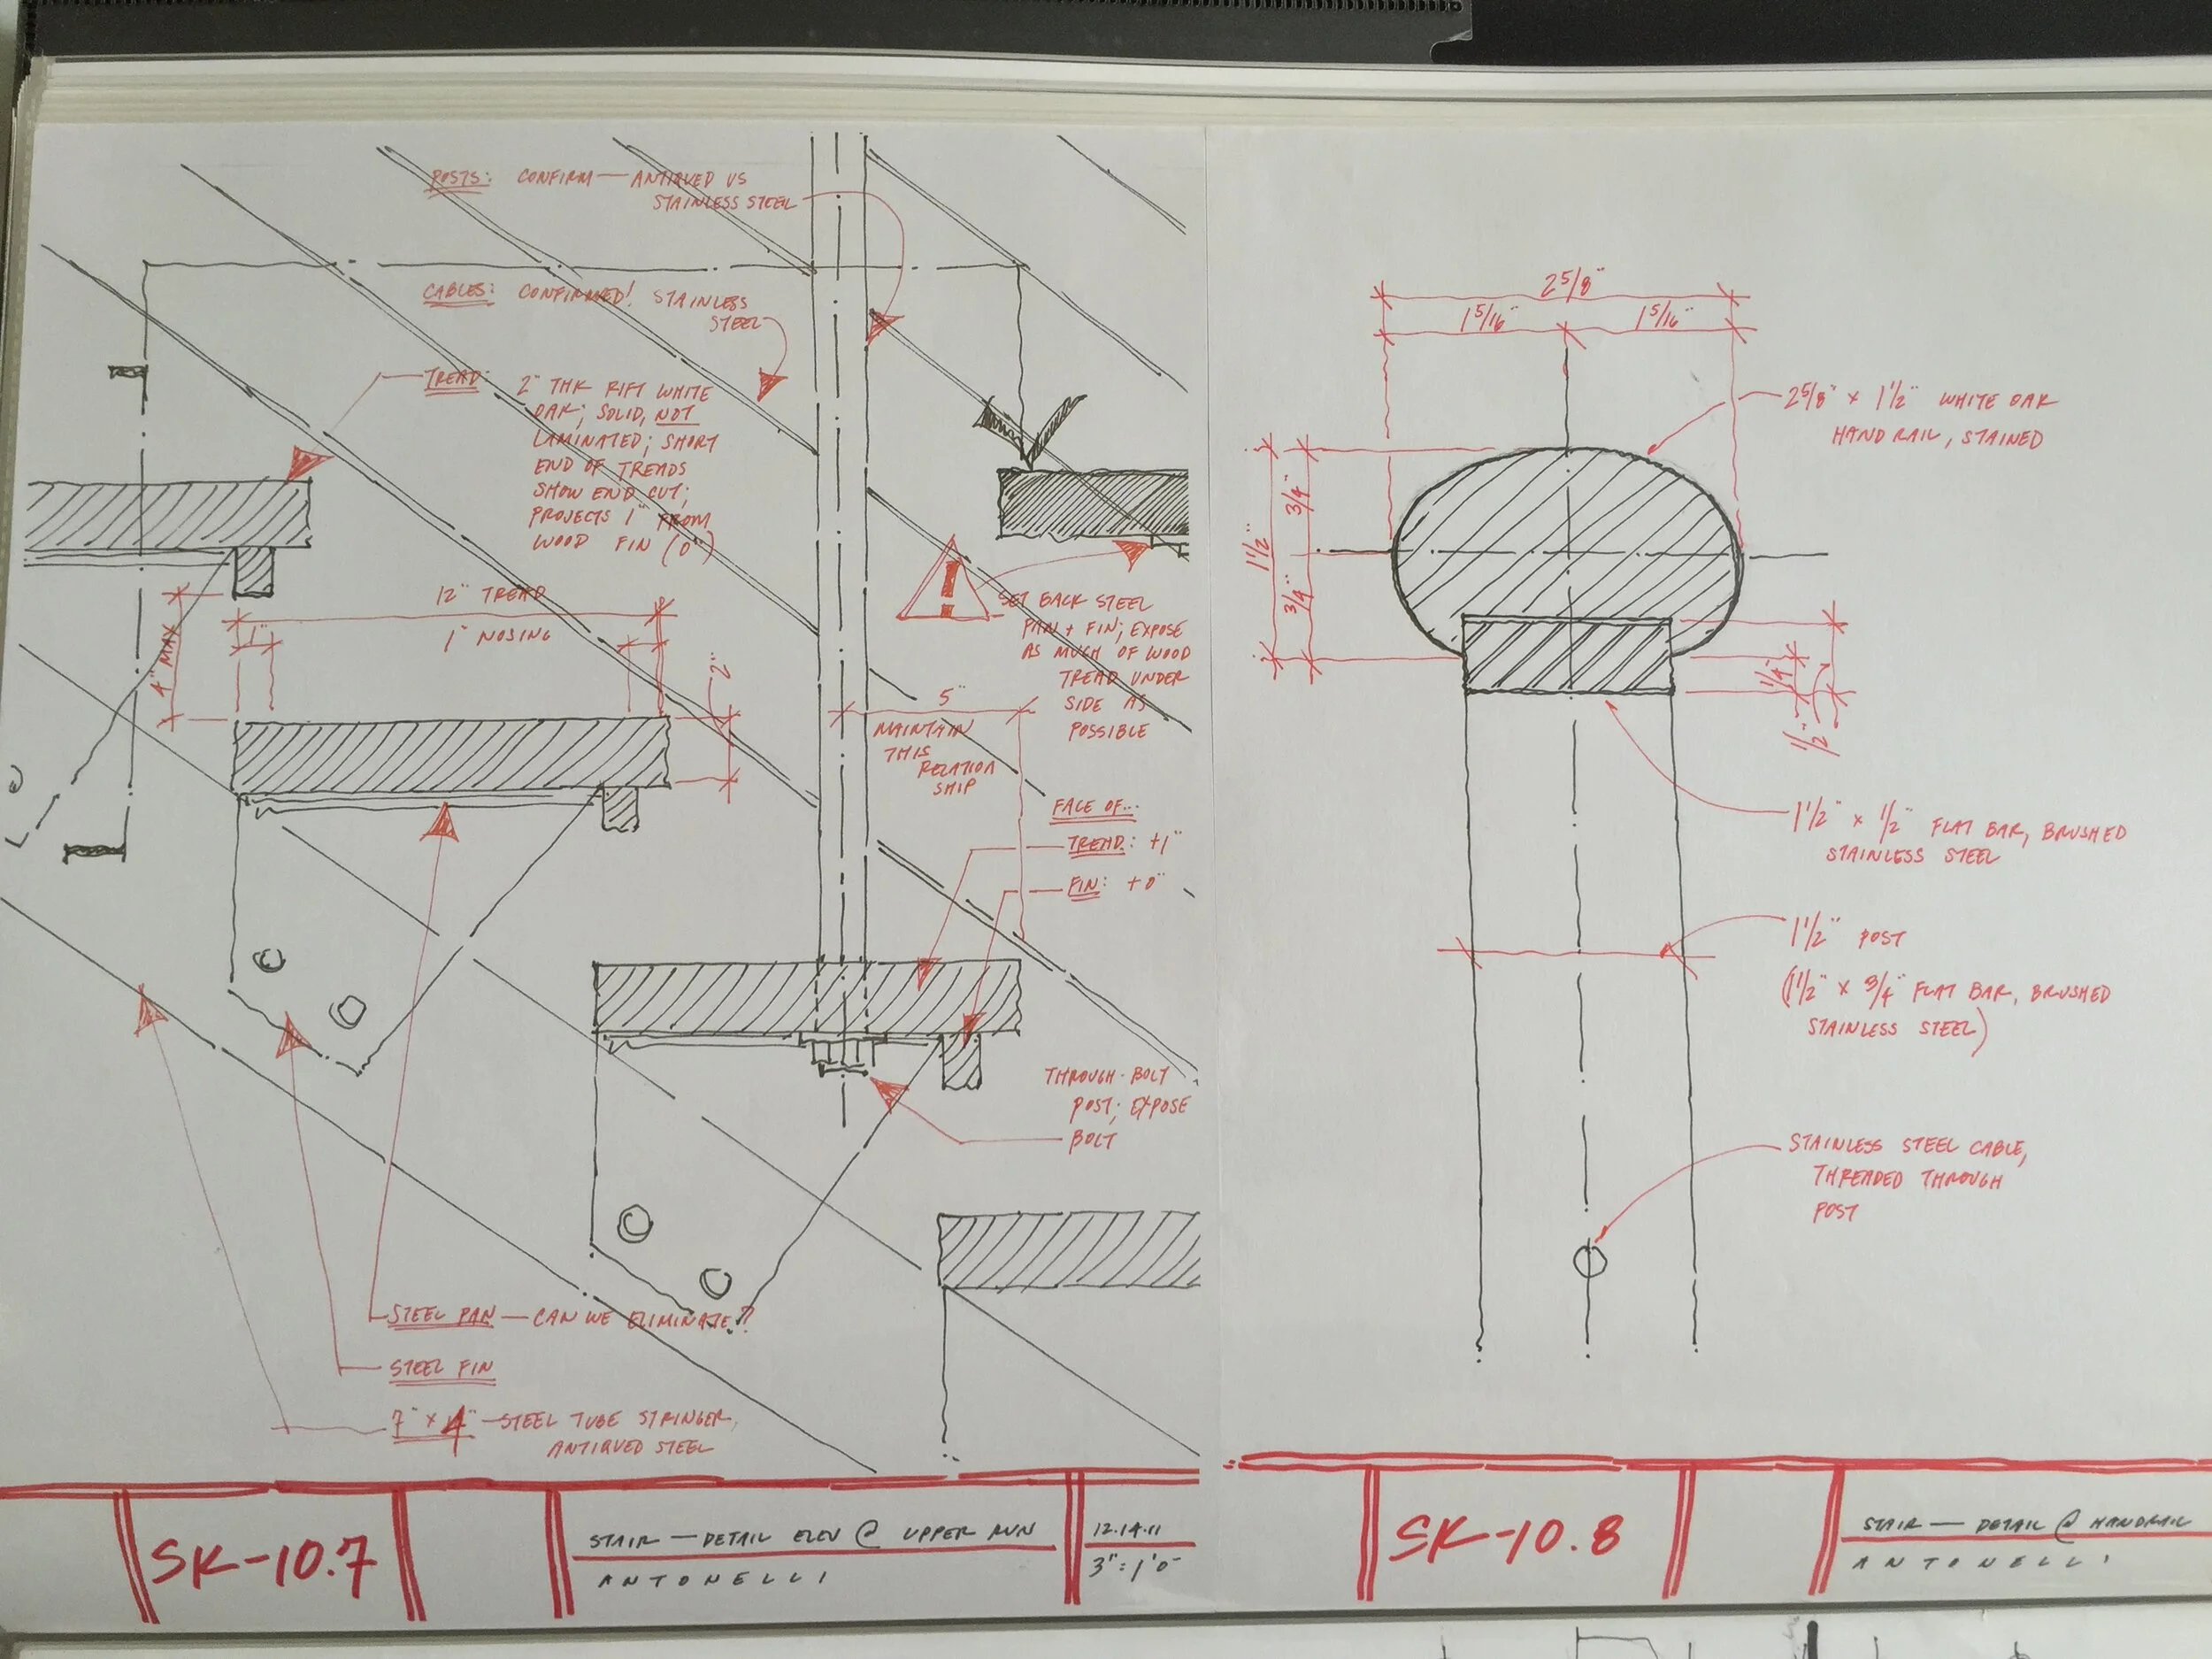 POSTS: CONFIRM — ANTIQUED VS
STAINLESS STEEL
CABLES: CONFIRMED! STAINLESS
STEEL
TREAD: 2" THK RIFT WHITE
OAK; SOLID, NOT
LAMINATED; SHORT
END OF TREADS
SHOW END CUT;
PROJECTS 1" FROM
WOOD FIN (0")
12" TREAD
1" NOSING
1"
4" MAX
2"
!
SET BACK STEEL
PAN + FIN; EXPOSE
AS MUCH OF WOOD
TREAD UNDER
SIDE AS
POSSIBLE
5"
MAINTAIN
THIS
RELATION
SHIP
FACE OF...
TREAD: +1"
FIN: +0"
THROUGH-BOLT
POST; EXPOSE
BOLT
STEEL PAN — CAN WE ELIMINATE?
STEEL FIN
7" x 4" STEEL TUBE STRINGER,
ANTIQUED STEEL
SK-10.7
STAIR — DETAIL ELEV @ UPPER RUN
ANTONELLI
12.14.11
3":1'0"
2 5/8"
1 5/16" 1 5/16"
2 5/8" x 1 1/2" WHITE OAK
HAND RAIL, STAINED
1 1/2"
3/4"
3/4"
1/4"
1/2"
1 1/2" x 1/2" FLAT BAR, BRUSHED
STAINLESS STEEL
1 1/2" POST
(1 1/2" x 3/4" FLAT BAR, BRUSHED
STAINLESS STEEL)
STAINLESS STEEL CABLE,
THREADED THROUGH
POST
SK-10.8
STAIR — DETAIL @ HANDRAIL
ANTONELLI